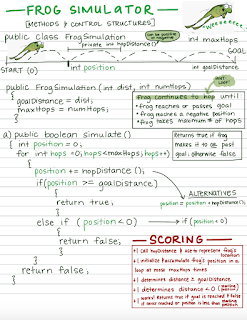 FROG SIMULATOR
[METHODS & CONTROL STRUCTURES]
"WEEEEEEE!"
public class FrogSimulation
can be positive or negative
private int hopDistance()
int maxHops
GOAL
START (0)
int position
int goalDistance
public FrogSimulation (int dist, int numHops)
{
goalDistance = dist;
maxHops = numHops;
}
Frog continues to hop until
•frog reaches or passes goal
•frog reaches a negative position
•frog takes maximum # of hops
a) public boolean simulate()
{ int position = 0;
for (int hops =0; hops<maxHops; hops++)
{
position += hopDistance();
if(position >= goalDistance)
{
return true;
}
else if ( position < 0 )
{
return false;
}
}
return false;
}
Returns true if frog
makes it to or past
goal; otherwise false
ALTERNATIVES
position = position + hopDistance();
if(position < 0)
SCORING
+1 call hopDistance() & use to represent frog's location
+1 initialize & accumulate frog's position in a
loop at most maxHops times
+1 determines distance ≥ goalDistance
+1 determines distance < 0
+1 works! Returns true if goal is reached & false
if never reached or position is less than